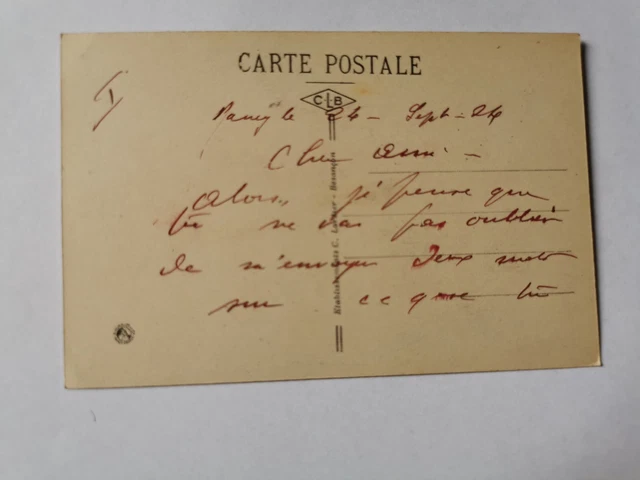 CARTE POSTALE
I
CLB
le 24 - Sept - 24
Cher ami -
Alors, je pense que
tu ne vas pas oublier
de m'envoyer deux mots
sur ce que tu
Etablissements C. - Besançon